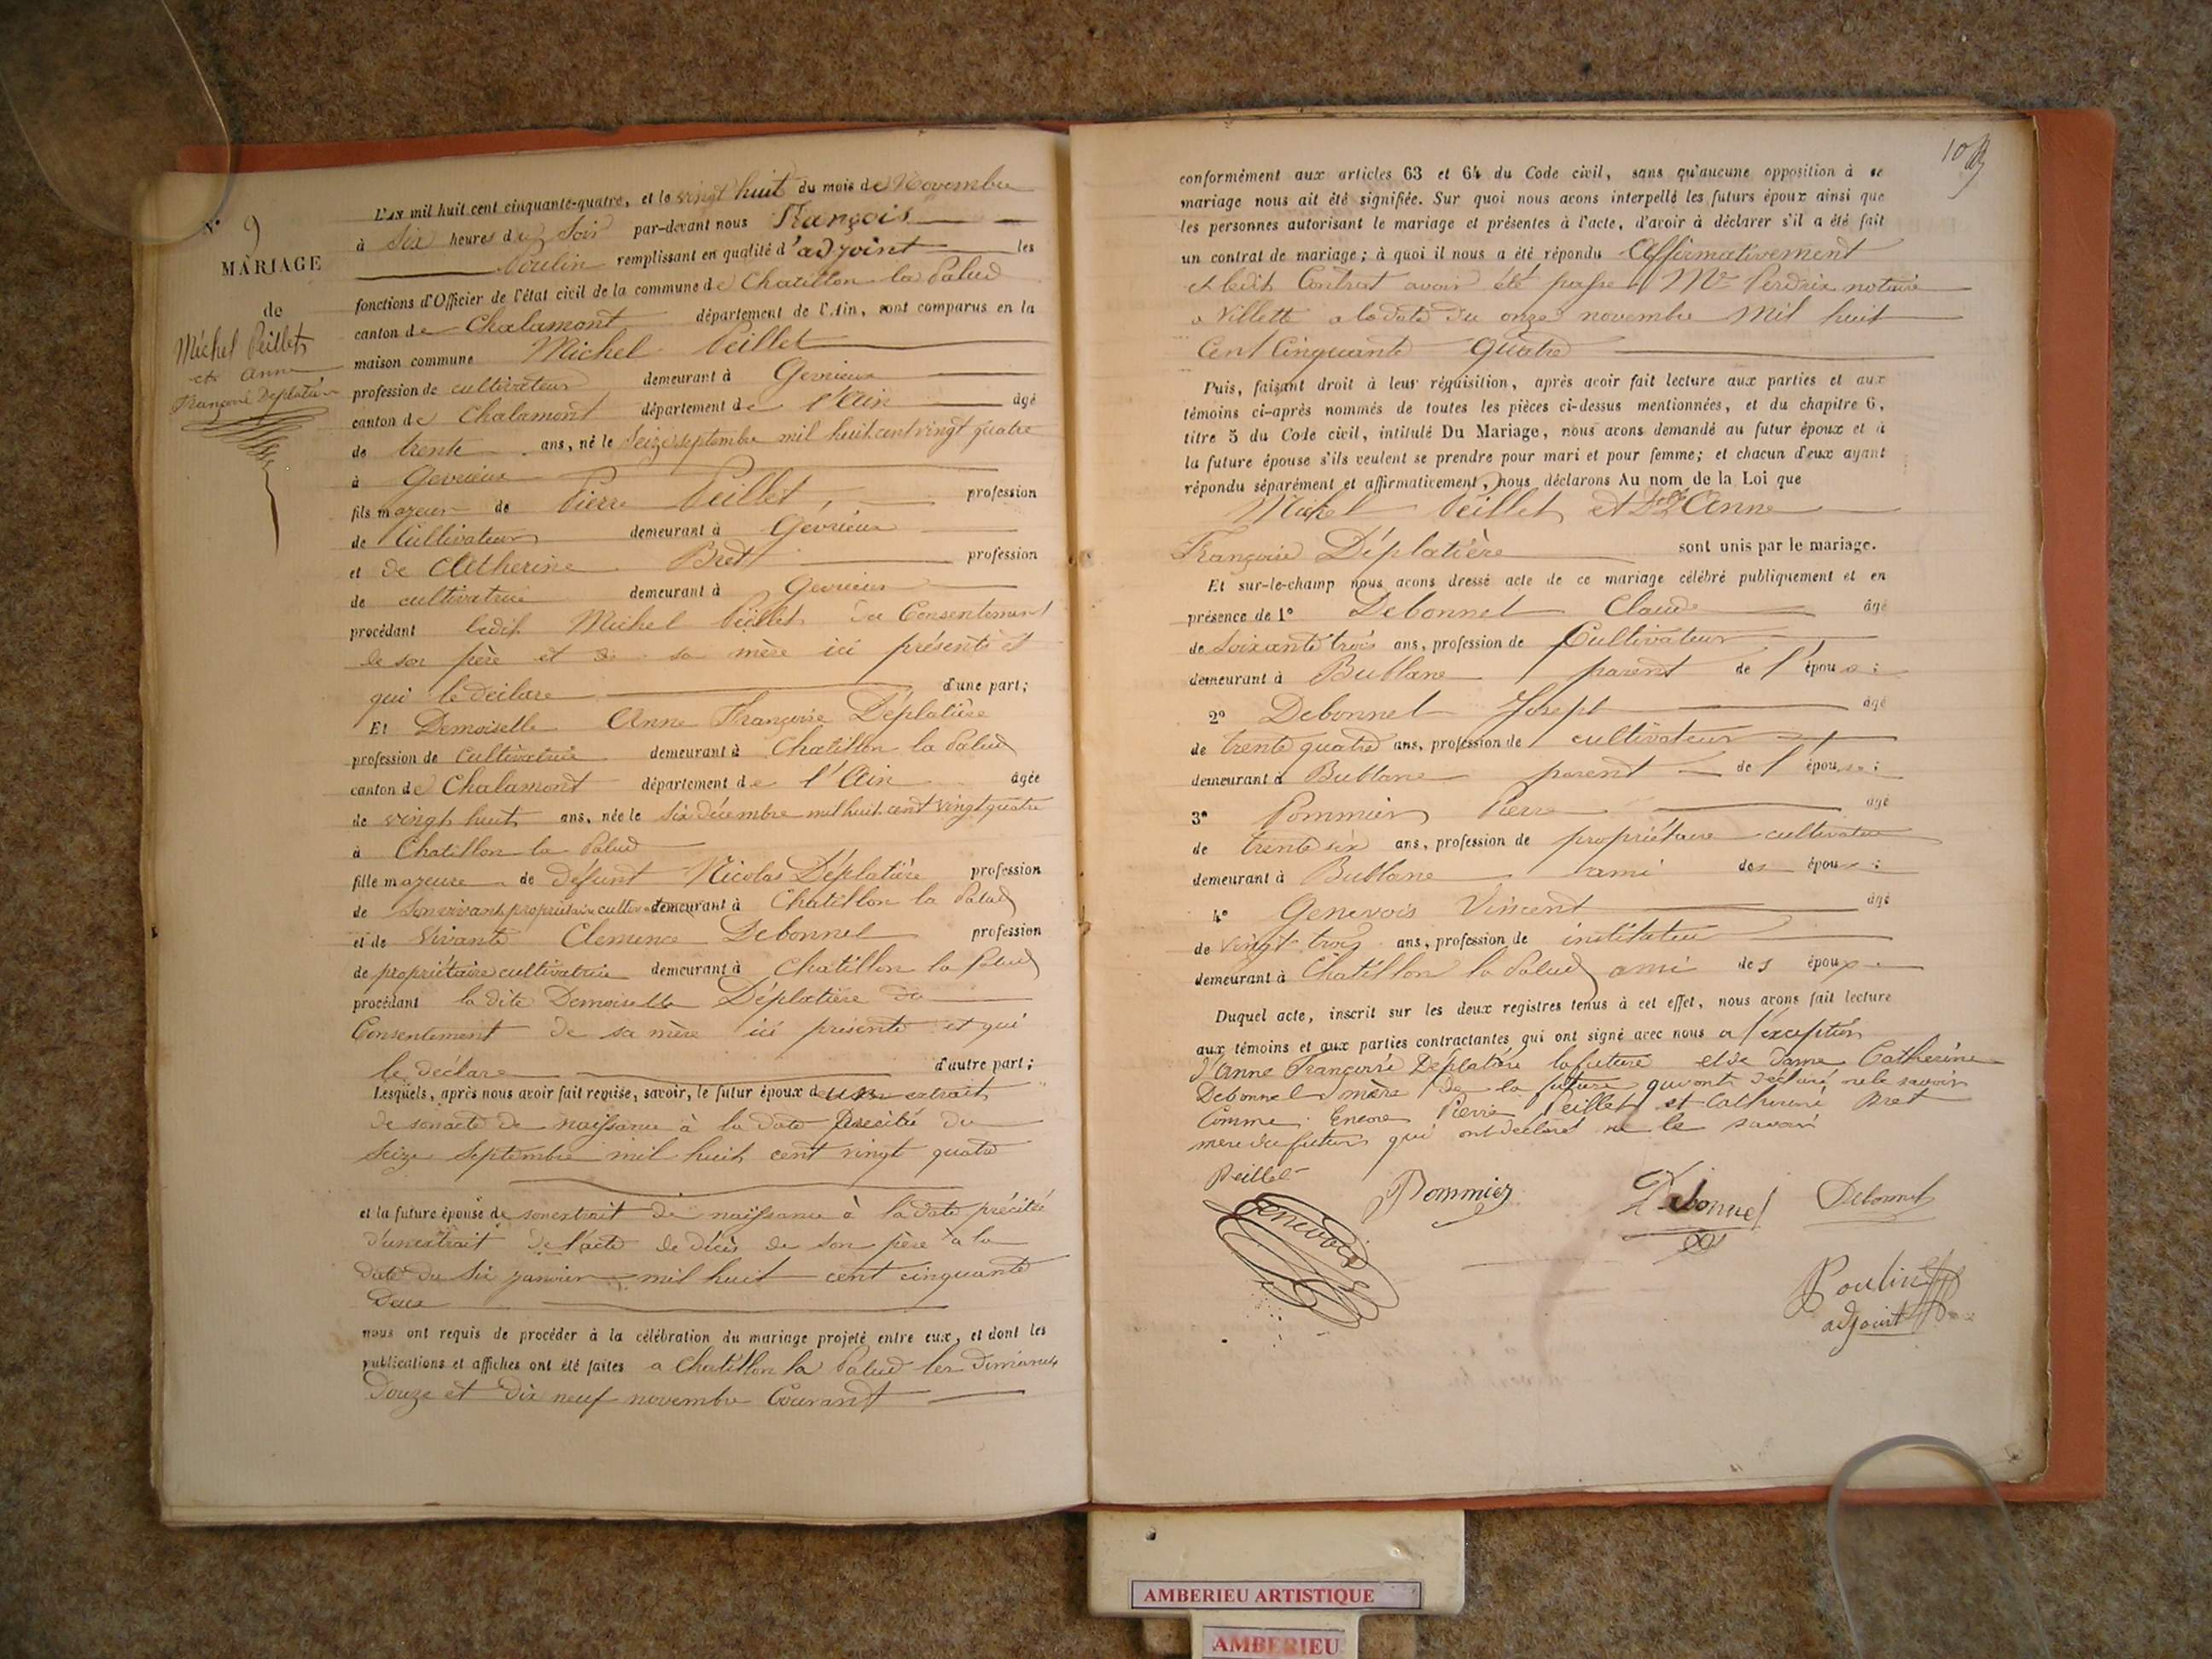 N° 9
MARIAGE
de
Michel Peillet
et anne
Françoise Déplatière
L'AN mil huit cent cinquante-quatre, et le vingt huit du mois de Novembre
à Six heures du Soir par-devant nous François
Poulin remplissant en qualité d'adjoint les
fonctions d'Officier de l'état civil de la commune de Chatillon la Palud
canton de Chalamont département de l'Ain, sont comparus en la
maison commune Michel Peillet
profession de cultivateur demeurant à Gevrieux
canton de Chalamont département de l'Ain âgé
de trente ans, né le Seize Septembre mil huit cent vingt quatre
à Gevrieux
fils majeur de Pierre Peillet, profession
de Cultivateur demeurant à Gévrieux
et de Catherine Bret profession
de cultivatrice demeurant à Gevrieux
procédant ledit Michel Peillet du Consentement
de son père et de sa mère ici présents et
qui le déclare d'une part;
Et Demoiselle Anne Françoise Déplatière
profession de Cultivatrice demeurant à Chatillon la Palud
canton de Chalamont département de l'Ain âgée
de vingt huit ans, née le Six décembre mil huit cent vingt quatre
à Chatillon la Palud
fille majeure de défunt Nicolas Déplatière profession
de Son vivant propriétaire cultiv demeurant à Chatillon la Palud
et de Vivante Clemence Debonnel profession
de propriétaire cultivatrice demeurant à Chatillon la Palud
procédant la dite Demoiselle Déplatière du
Consentement de sa mère ici présente et qui
le déclare d'autre part;
Lesquels, après nous avoir fait remise, savoir, le futur époux d'un extrait
de son acte de naissance à la date précitée du
Seize Septembre mil huit cent vingt quatre
et la future épouse de son extrait de naissance à la date précitée
d'un extrait de l'acte de décès de son père à la
date du Six janvier mil huit cent cinquante
Deux
nous ont requis de procéder à la célébration du mariage projeté entre eux, et dont les
publications et affiches ont été faites a Chatillon la Palud les Dimanches
Douze et Dix neuf novembre Courant
10
conformément aux articles 63 et 64 du Code civil, sans qu'aucune opposition à ce
mariage nous ait été signifiée. Sur quoi nous avons interpellé les futurs époux ainsi que
les personnes autorisant le mariage et présentes à l'acte, d'avoir à déclarer s'il a été fait
un contrat de mariage; à quoi il nous a été répondu Affirmativement
et ledit Contrat avoir été passé Mᵉ Perdrix notaire
a Villette a la date du onze novembre Mil huit
Cent Cinquante Quatre
Puis, faisant droit à leur réquisition, après avoir fait lecture aux parties et aux
témoins ci-après nommés de toutes les pièces ci-dessus mentionnées, et du chapitre 6,
titre 5 du Code civil, intitulé Du Mariage, nous avons demandé au futur époux et à
la future épouse s'ils veulent se prendre pour mari et pour femme; et chacun d'eux ayant
répondu séparément et affirmativement, nous déclarons Au nom de la Loi que
Michel Peillet et Dˡˡᵉ Anne
Françoise Déplatière sont unis par le mariage.
Et sur-le-champ nous avons dressé acte de ce mariage célébré publiquement et en
présence de 1° Debonnel Claude âgé
de Soixante trois ans, profession de Cultivateur
demeurant à Bublane parent de l'épouse;
2° Debonnel Joseph âgé
de trente quatre ans, profession de cultivateur
demeurant à Bublane parent de l'épouse;
3° Pommier Pierre âgé
de trente six ans, profession de propriétaire cultivateur
demeurant à Bublane ami des époux;
4° Genevois Vincent âgé
de vingt trois ans, profession de instituteur
demeurant à Chatillon la Palud ami des époux.
Duquel acte, inscrit sur les deux registres tenus à cet effet, nous avons fait lecture
aux témoins et aux parties contractantes qui ont signé avec nous a l'exception
d'Anne Françoise Déplatière la future et de dame Catherine
Debonnel mère de la future qui ont déclaré ne le savoir
Comme Encore Pierre Peillet et Catherine Bret
mère du futur qui ont déclaré ne le savoir
Peillet
Pommier
Debonnel
Debonnel
Genevois
Poulin
adjoint
AMBERIEU ARTISTIQUE
AMBERIEU